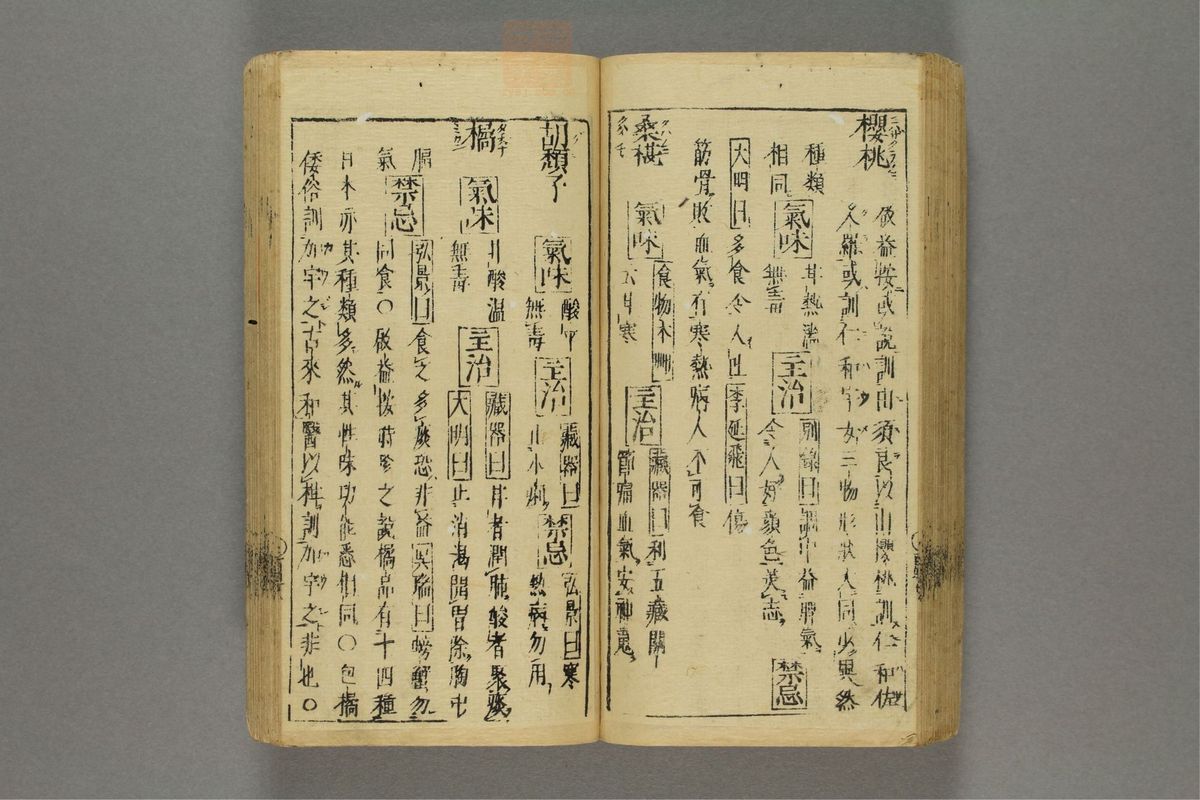 櫻桃
啟益按或說訓由須良以山櫻桃訓仁和佐
久羅或訓仁和宇女三物形狀大同少異然
種類
相同
氣味
甘熱濇
無毒
主治
別錄曰調中益脾氣
令人好顏色美志
禁忌
大明曰多食令人吐李延飛曰傷
筋骨敗血氣有寒熱病人不可食
桑椹
氣味
食物本艸
甘寒
主治
藏器曰利五藏關
節痛血氣安神魂
胡頹子
氣味
酸平
無毒
主治
藏器曰
止水痢
禁忌
弘景曰寒
熱病勿用
橘
氣味
甘酸温
無毒
主治
藏器曰甘者潤肺酸者聚痰
大明曰止消渴開胃除胸中
膈
氣
禁忌
弘景曰食之多痰恐非益吳瑞曰螃蟹勿
同食〇啟益按時珍之說橘品有十四種
日本亦其種類多然其性味功能悉相同〇包橘
倭俗訓加宇之古來和醫以柑訓加宇之非也〇